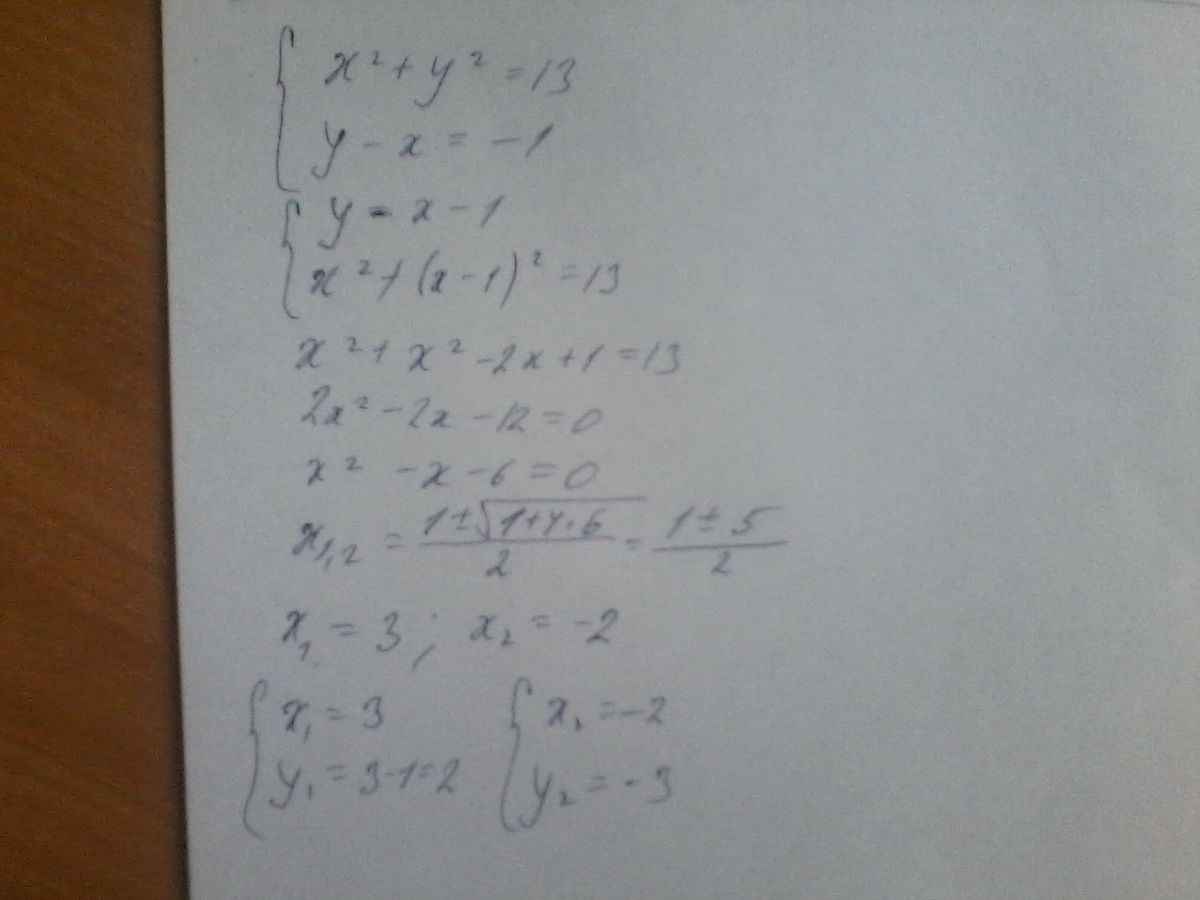 x² + y² = 13
y - x = -1
y = x - 1
x² + (x - 1)² = 13
x² + x² - 2x + 1 = 13
2x² - 2x - 12 = 0
x² - x - 6 = 0
x₁,₂ = (1 ± √(1+4·6))/2 = (1 ± 5)/2
x₁ = 3 ; x₂ = -2
x₁ = 3 x₂ = -2
y₁ = 3-1=2 y₂ = -3